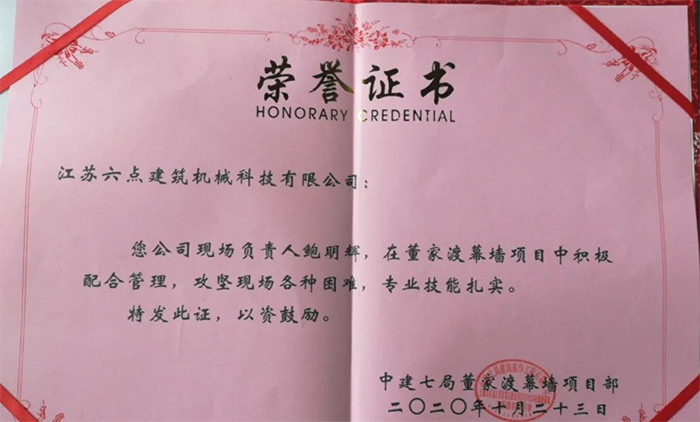 荣誉证书
HONORARY CREDENTIAL
江苏六点建筑机械科技有限公司：
您公司现场负责人鲍明辉，在董家渡幕墙项目中积极
配合管理，攻坚现场各种困难，专业技能扎实。
特发此证，以资鼓励。
中建七局董家渡幕墙项目部
二〇二〇年十月二十三日